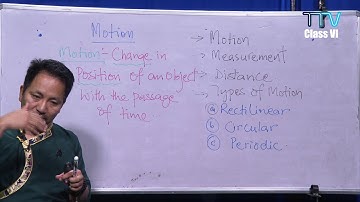 TTV
Class VI
Motion
Motion - Change in
Position of an object
With the passage
of time
→ Motion
→ Measurement
→ Distance
→ Types of Motion
ⓐ Rectilinear
ⓑ Circular
ⓒ Periodic